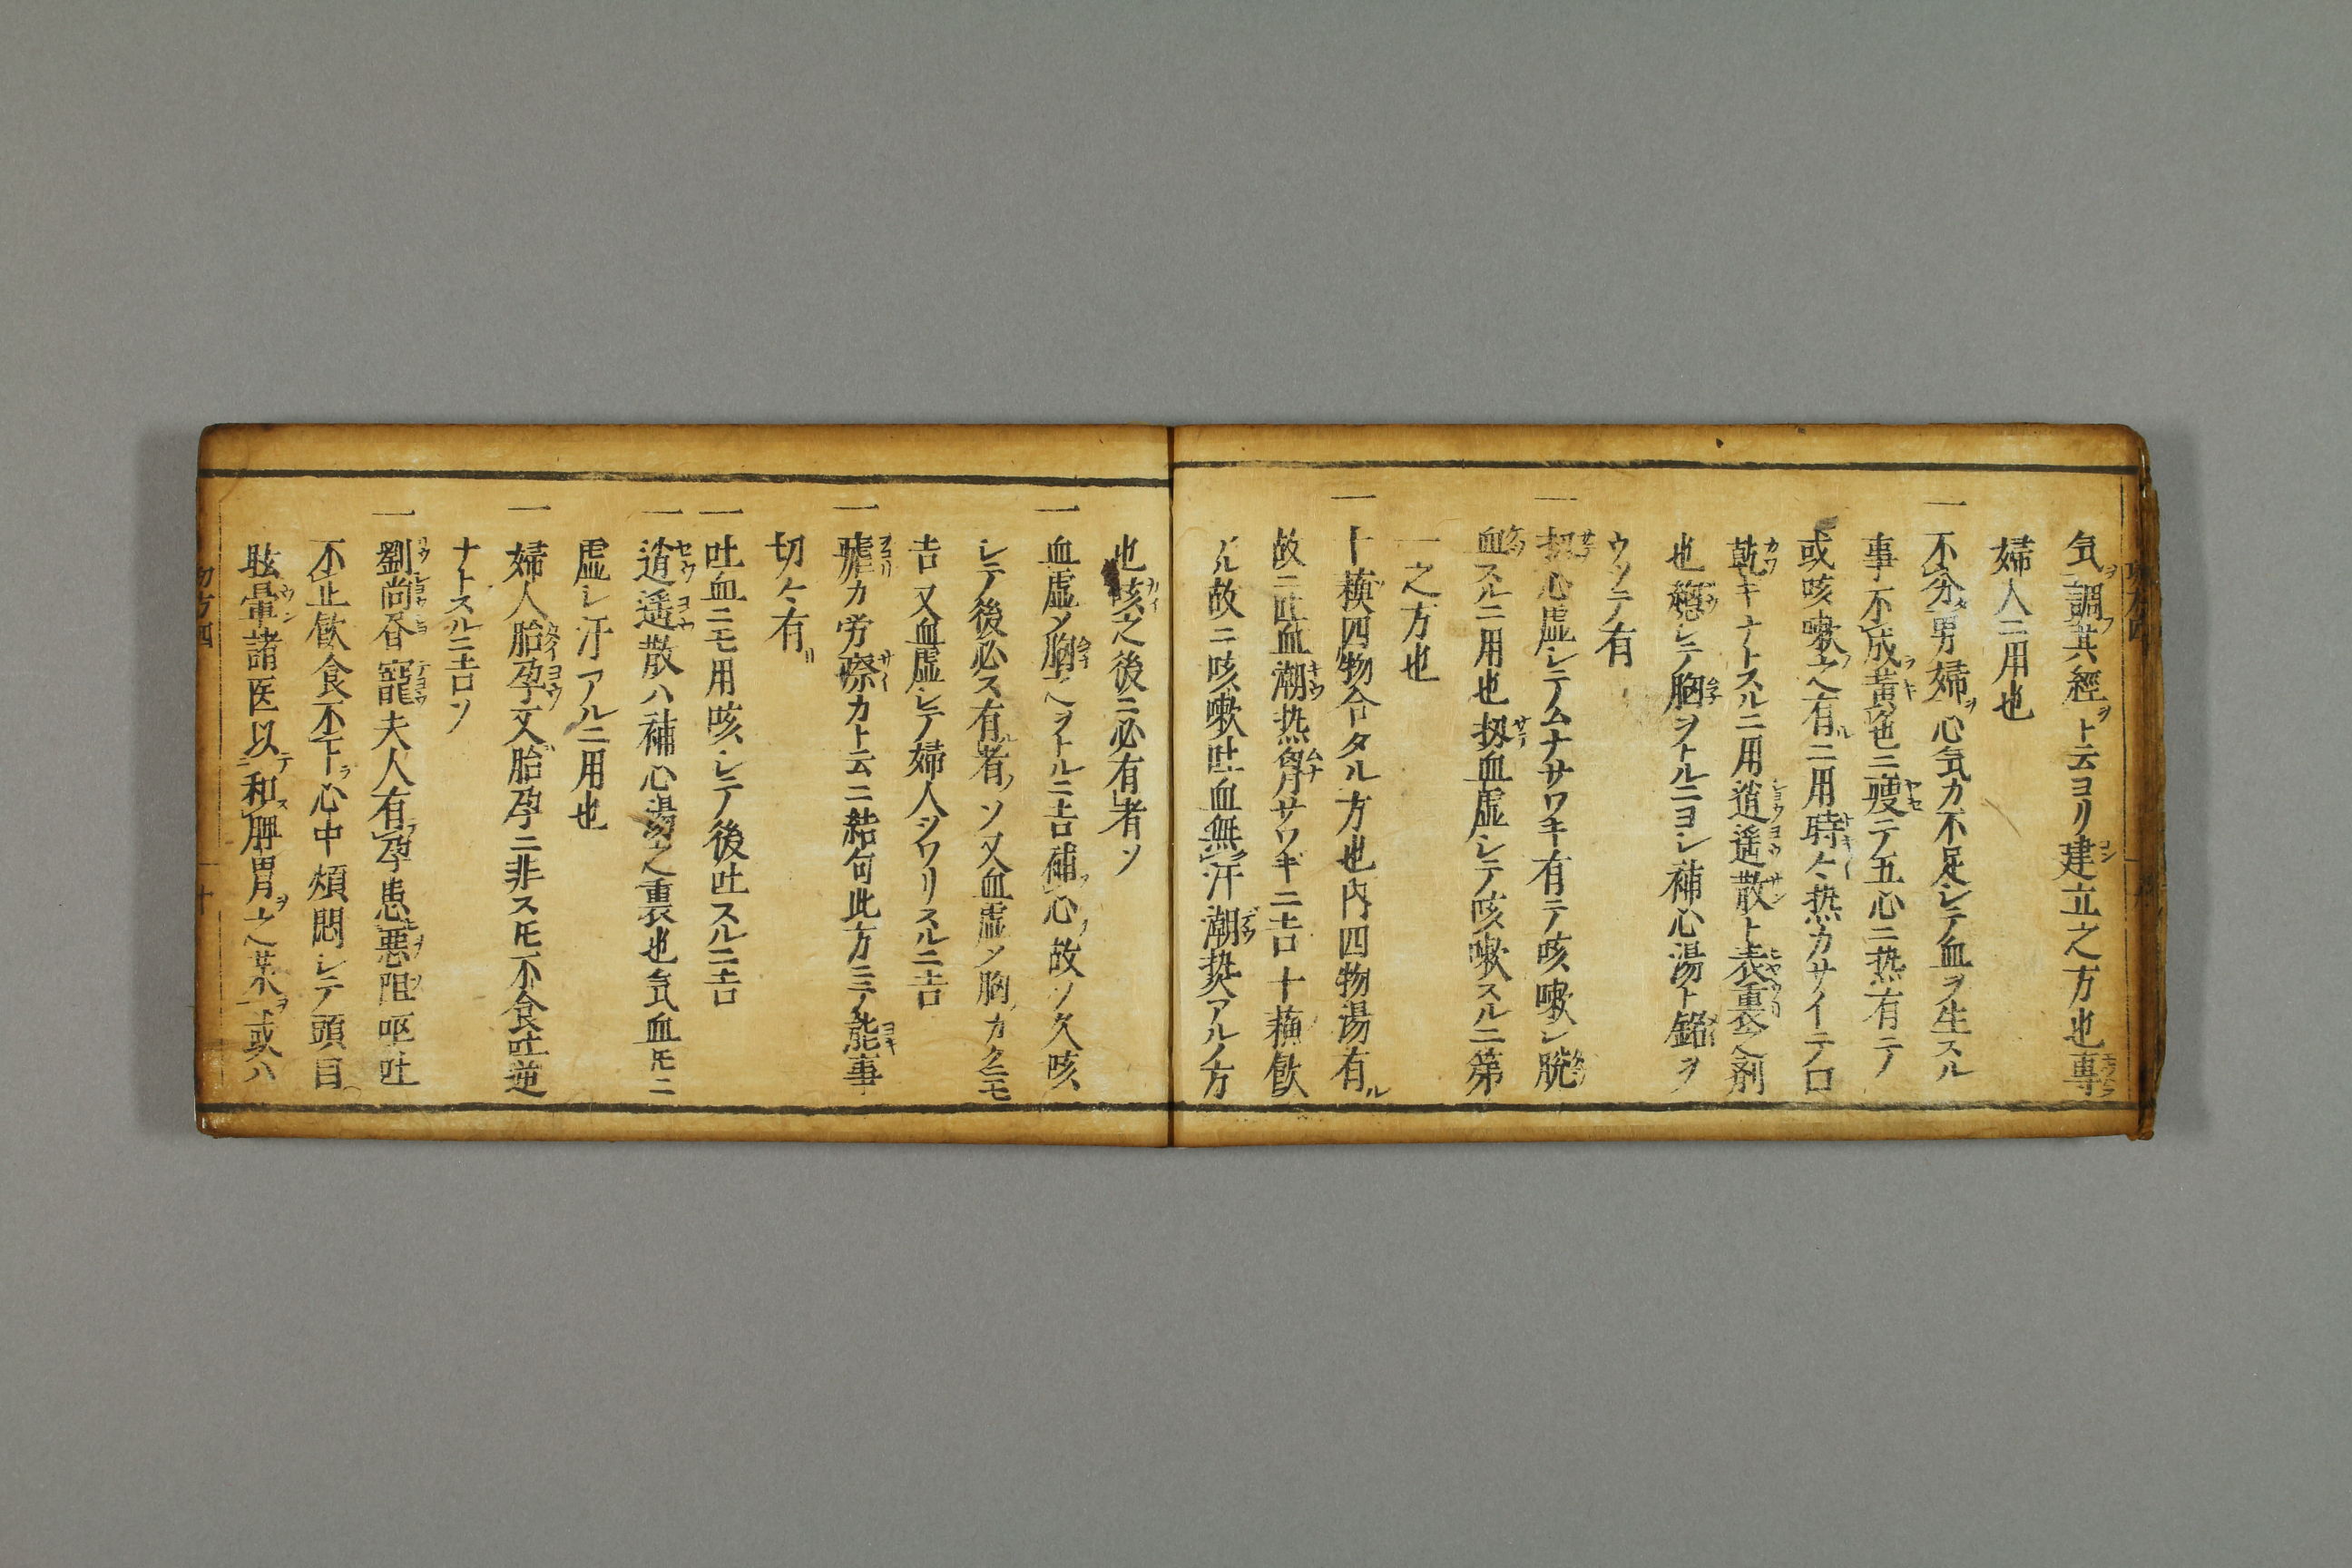 気調其經ト云ヨリ建立之方也専
婦人ニ用也
一不分男婦心気カ不足シテ血ヲ生スル
事不成黄色ニ瘦テ五心ニ热有テ
或咳嗽之有ニ用時々热カサイテロ
乾キナトスルニ用逍遥散ト表裏之剤
也 シテ胸ヲトルニヨシ補心湯ト銘ヲ
ウツテ有
一 心虚シテムナサワキ有テ咳嗽シ脱
血スルニ用也 血虚シテ咳嗽スルニ第
一之方也
一十 四物合タル方也内四物湯有
故ニ吐血潮热胷サワギニ吉十 飲
ル故ニ咳嗽吐血無汗潮热アルノ方
也咳之後ニ必有者ソ
一血虚メ胸之ヲトルニ吉補心故ソ久咳
シテ後必ス有者ソ又血虚メ胸カクニモ
吉又血虚シテ婦人シワリスルニ吉
一瘧カ労瘵カト云ニ結句此方ニテ能事
切々有
一吐血ニモ用咳シテ後吐スルニ吉
一逍遥散ハ補心湯之裏也気血モニ
虚シ汗アルニ用也
一婦人胎孕又胎孕ニ非スモ不食吐逆
ナトスルニ吉ソ
一劉尚 寵夫人有孕患悪阻呕吐
不止飲食不下心中煩悶シテ頭目
眩暈諸医以和脾胃之薬或ハ